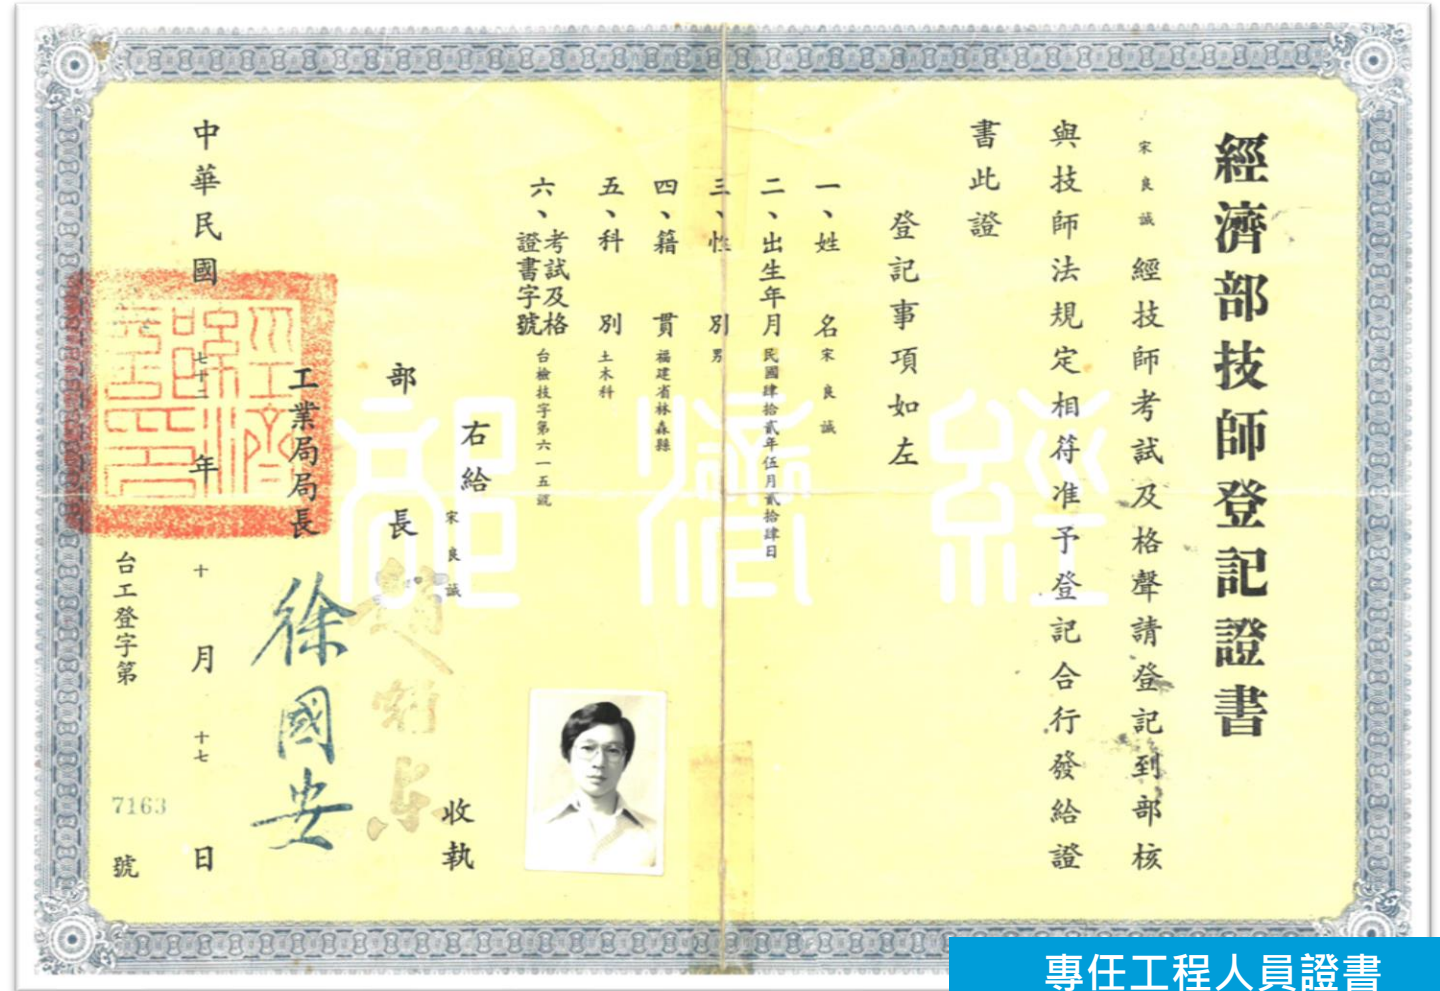 經濟部技師登記證書
宋良誠 經技師考試及格聲請登記到部核
與技師法規定相符准予登記合行發給證
書此證
登記事項如左
一、姓名 宋良誠
二、出生年月 民國肆拾貳年伍月貳拾肆日
三、性別 男
四、籍貫 福建省林森縣
五、科別 土木科
六、考試及格證書字號 台檢技字第六一五號
右給 宋良誠 收執
部長
工業局局長 徐國安
中華民國 七十二 年 十 月 十七 日
台工登字第 7163 號
經濟部
專任工程人員證書